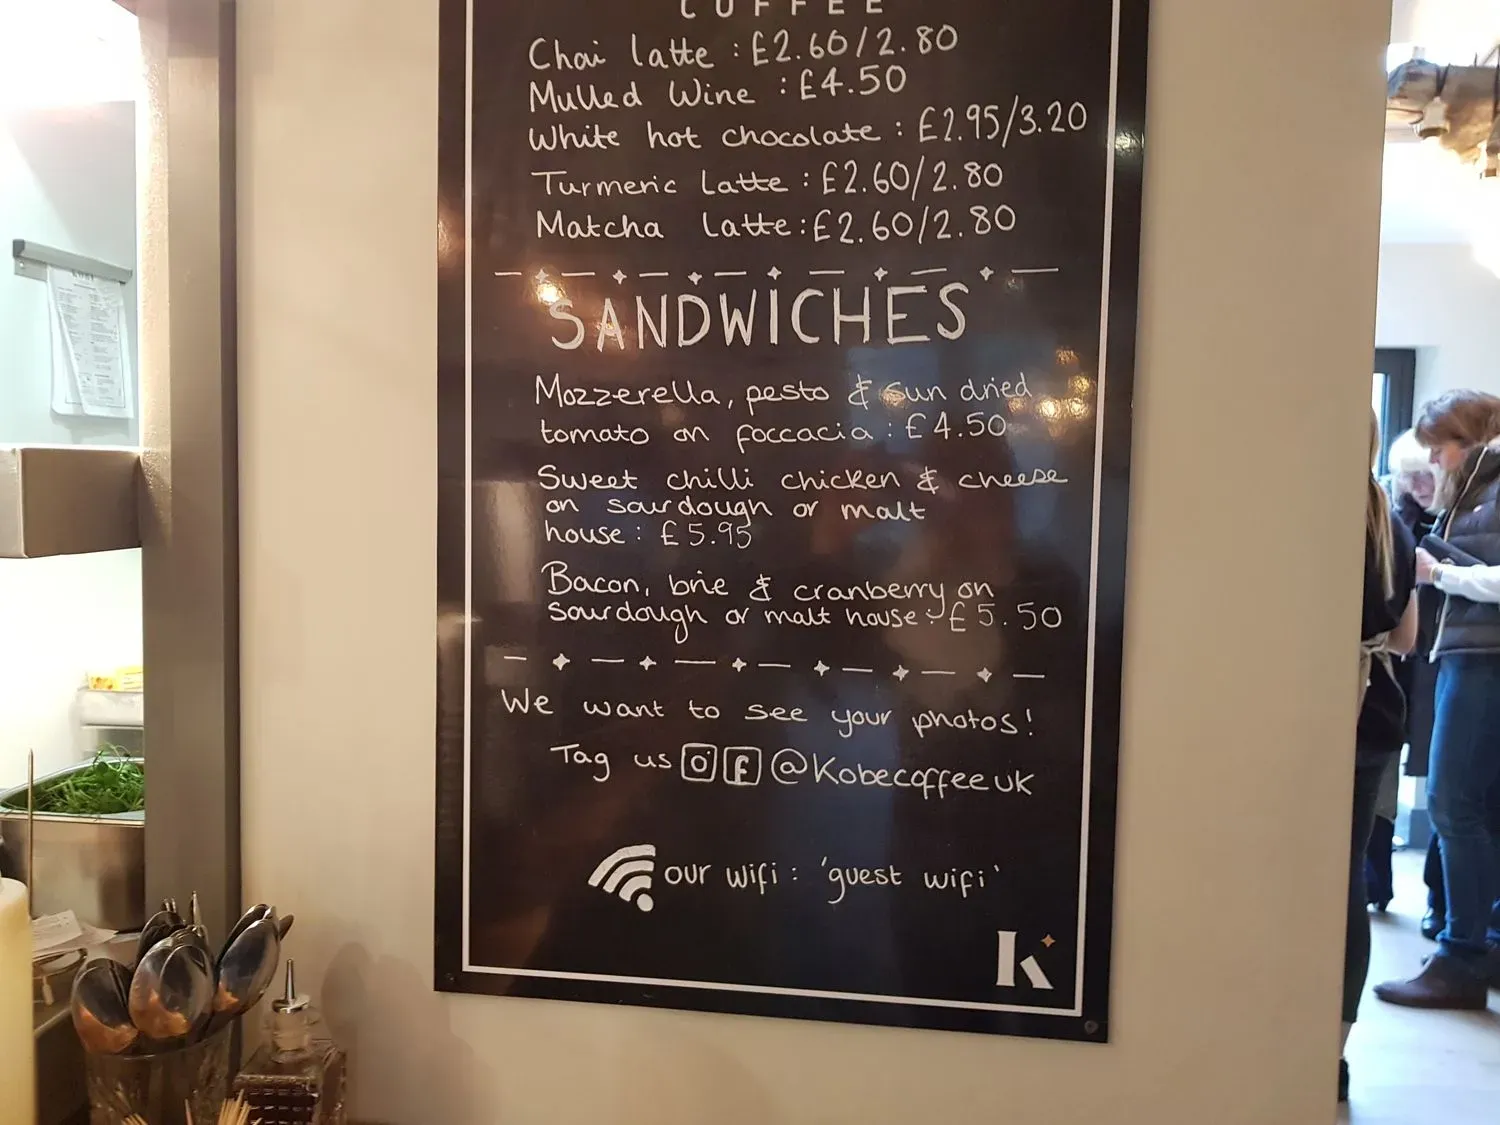 COFFEE
Chai latte : £2.60/2.80
Mulled Wine : £4.50
White hot chocolate : £2.95/3.20
Turmeric Latte : £2.60/2.80
Matcha Latte : £2.60/2.80
SANDWICHES
Mozzerella, pesto & sun dried
tomato on foccacia : £4.50
Sweet chilli chicken & cheese
on sourdough or malt
house : £5.95
Bacon, brie & cranberry on
sourdough or malt house : £5.50
We want to see your photos!
Tag us @Kobecoffeeuk
our wifi : 'guest wifi'
K